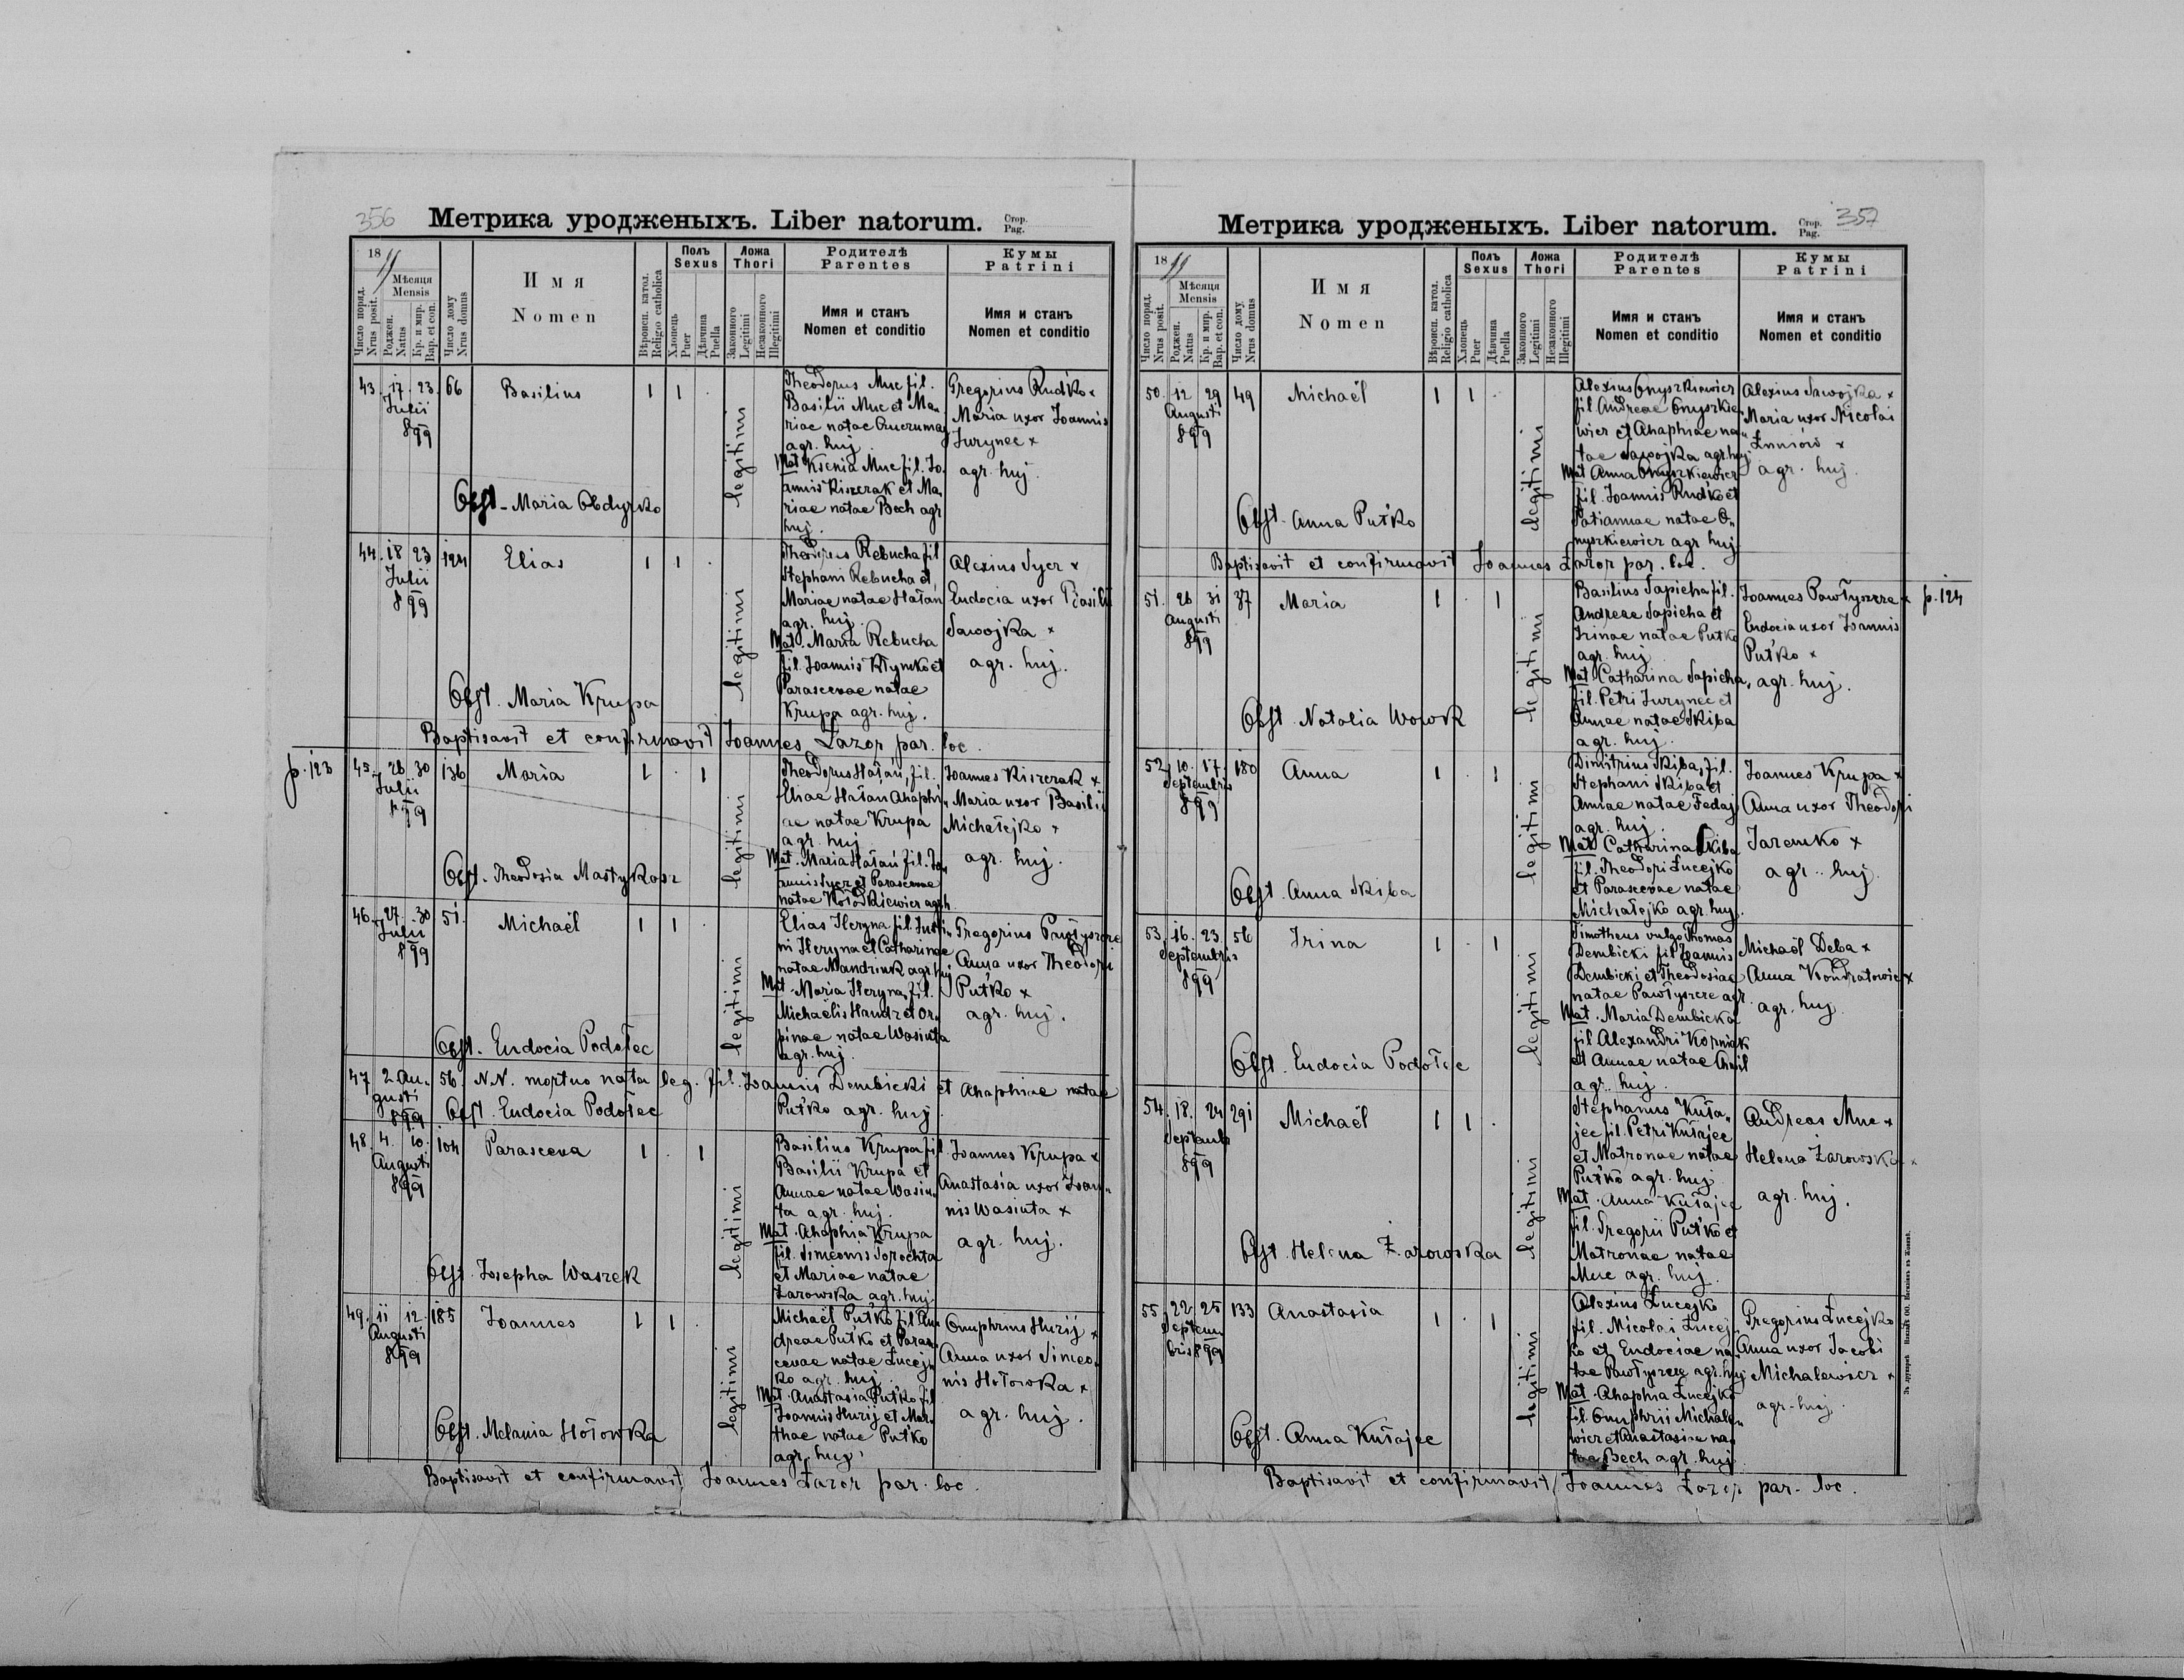 356 Метрика уродженыхъ. Liber natorum. Стор. Pag.
1899
Число поряд. Nrus posit.
Мѣсяця Mensis
Роджен. Natus
Кр. и мир. Bap. et con.
Число дому Nrus domus
Имя
Nomen
Вѣроисп. катол. Religio catholica
Полъ Sexus
Хлопець Puer
Дѣвчина Puella
Ложа Thori
Законного Legitimi
Незаконного Illegitimi
Родителѣ
Parentes
Имя и станъ
Nomen et conditio
Кумы
Patrini
Имя и станъ
Nomen et conditio
43. 17. 23. 66 Basilius 1 1 .
Julii
899
legitimi
Theodorus Muc fil.
Basilii Muc et Ma„
riae natae
agr. huj.
Mat Ksenia Muc fil. Jo„
annis Kiszczak et Ma„
riae natae Bech agr
huj.
Gregorius Rudko x
Maria uxor Joannis
Jurynec x
agr. huj.
Obst - Maria Obdyrko
44. 18 23 124 Elias 1 1 .
Julii
899
legitimi
Theodorus Rebucha fil
Stephani Rebucha et
Mariae natae Hałań
agr. huj.
Mat. Maria Rebucha
fil. Joannis Kłymko et
Parascevae natae
Krupa agr. huj.
Alexius Sycz x
Eudocia uxor Basilii
Sawojka x
agr. huj.
Obst. Maria Krupa
Baptisavit et confirmavit Joannes Łazor par. loc.
p. 123
45. 26 30 136 Maria 1 . 1
Julii
899
legitimi
Theodorus Hałań, fil.
Eliae Hałań Ahaphi„
ae natae Krupa
agr. huj
Mat. Maria Hałań fil. Jo„
annis Sycz et Parascevae
natae Kołodkiewicz agr. h
Joannes Kiszczak x
Maria uxor Basilii
Michałejko x
agr. huj.
Obst. Theodosia Mastykasz
46. 27. 30 51. Michaël 1 1
Julii
899
legitimi
Elias Heryna fil. Justi„
ni Heryna et Catharinae
natae Mandziuk agr. huj
Mat. Maria Heryna, fil.
Michaëlis Handz et Or„
pinae natae Wasiuta
agr. huj
Gregorius Pawłyszcze
Anna uxor Theodori
Put'ko x
agr. huj.
Obst. Eudocia Podołec
47 2 Au„ 56 N.N. mortuo nata leg. fil. Joannis Dembicki et Ahaphiae natae
gusti
899
Obst. Eudocia Podołec Put'ko agr. huj.
48. 4. 10. 104 Parasceva 1 . 1
Augusti
899
legitimi
Basilius Krupa fil
Basilii Krupa et
Annae natae Wasiu„
ta agr. huj.
Mat. Ahaphia Krupa
fil. Simeonis Torochta
et Mariae natae
Żarowska agr. huj
Joannes Krupa x
Anastasia uxor Joan„
nis Wasiuta x
agr. huj.
Obst. Josepha Waszek
49. 11 12. 185 Joannes 1 1 .
Augusti
899
legitimi
Michaël Put'ko fil An„
dreae Put'ko et Paras„
cevae natae Łucej„
ko agr. huj.
Mat. Anastasia Put'ko fil
Joannis Hurij et Mar„
thae natae Put'ko
agr. huj
Onuphrius Hurij x
Anna uxor Simeo„
nis Hołowka x
agr. huj.
Obst. Melania Hołowka
Baptisavit et confirmavit Joannes Łazor par. loc.
Метрика уродженыхъ. Liber natorum. Стор. Pag. 357
1899
Число поряд. Nrus posit.
Мѣсяця Mensis
Роджен. Natus
Кр. и мир. Bap. et con.
Число дому Nrus domus
Имя
Nomen
Вѣроисп. катол. Religio catholica
Полъ Sexus
Хлопець Puer
Дѣвчина Puella
Ложа Thori
Законного Legitimi
Незаконного Illegitimi
Родителѣ
Parentes
Имя и станъ
Nomen et conditio
Кумы
Patrini
Имя и станъ
Nomen et conditio
50. 12 29 49 Michaël 1 1 .
Augusti
899
legitimi
Alexius Onyszkiewicz
fil. Andreae Onyszkie„
wicz et Ahaphiae na„
tae Sawojka agr. huj
Mat Anna Onyszkiewicz
fil. Joannis Rudko et
Tatiannae natae O„
nyszkiewicz agr huj
Alexius Sawojka x
Maria uxor Nicolai
x
agr. huj.
Obst. Anna Put'ko
Baptisavit et confirmavit Joannes Łazor par. loc.
51. 26 31 37 Maria 1 . 1
Augusti
899
legitimi
Basilius Sapieha fil.
Andreae Sapieha et
Irinae natae Putko
agr. huj
Mat Catharina Sapieha,
fil. Petri Jurynec et
Annae natae Skiba
agr. huj.
Joannes Pawłyszcze x
Eudocia uxor Joannis
Put'ko x
agr. huj.
p. 124
Obst. Natalia Wowk
52. 10. 17. 180 Anna 1 . 1
Septembris
899
legitimi
Dimitrius Skiba, fil.
Stephani Skiba et
Annae natae Fedaj
agr. huj.
Mat Catharina Skiba
fil. Theodori Łucejko
et Parascevae natae
Michałejko agr. huj.
Joannes Krupa x
Anna uxor Theodori
Jaremko x
agr. huj.
Obst. Anna Skiba
53. 16. 23. 56 Irina 1 . 1
Septembris
899
legitimi
Timotheus vulgo Thomas
Dembicki fil Joannis
Dembicki et Theodosiae
natae Pawłyszcze agr.
Mat. Maria Dembicka
fil Alexandri Korniak
et Annae natae
agr. huj.
Michaël Deba x
Anna Kondratowicz x
agr. huj
Obst. Eudocia Podołec
54. 18. 24 291 Michaël 1 1 .
Septemb
899
legitimi
Stephanus Kuła„
jec fil. Petri Kułajec
et Matronae natae
Put'ko agr. huj.
Mat. Anna Kułajec
fil. Gregorii Put'ko et
Matronae natae
Muc agr. huj.
Andreas Muc x
Helena Żarowska x
agr. huj.
Obst. Helena Żarowska
55. 22. 25 133 Anastasia 1 . 1
Septem
bris 899
legitimi
Alexius Łucejko
fil. Nicolai Łucej„
ko et Eudociae na„
tae Pawłyszcze agr. huj
Mat. Ahaphia Łucejko
fil. Onuphrii Michale„
wicz et Anastasiae na„
tae Bech agr. huj.
Gregorius Łucejko
Anna uxor Jacobi
Michalewicz x
agr. huj.
Obst. Anna Kułajec
Baptisavit et confirmavit Joannes Łazor par. loc.